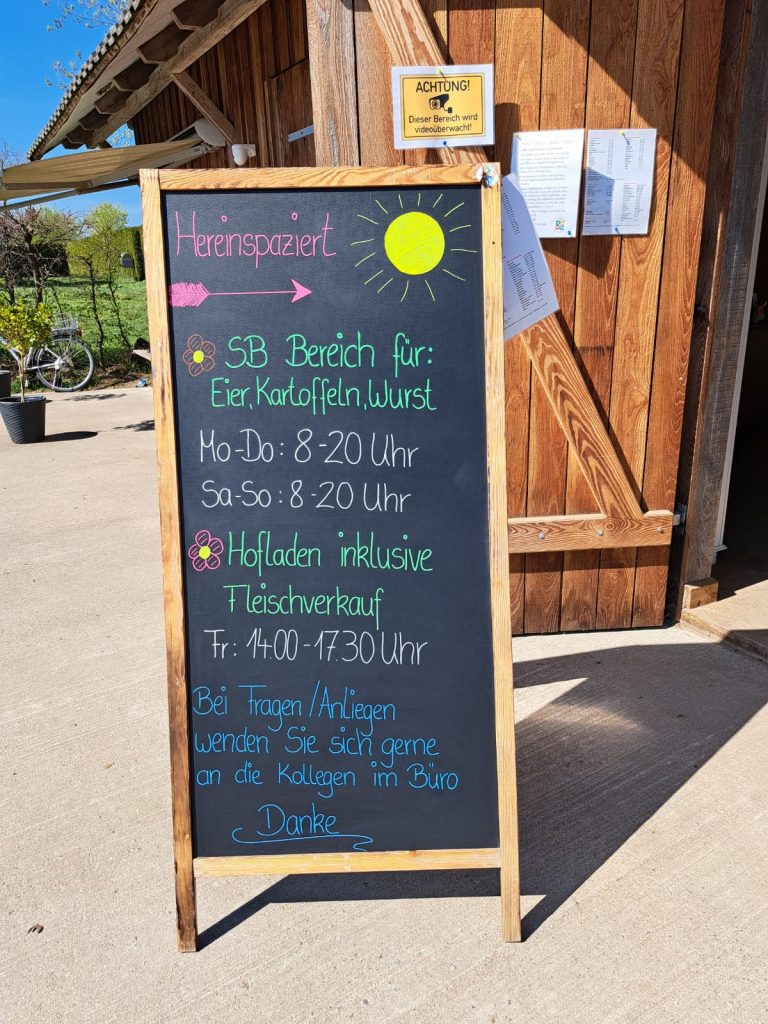 ACHTUNG!
Dieser Bereich wird
videoüberwacht!
Hereinspaziert
SB Bereich für:
Eier, Kartoffeln, Wurst
Mo-Do: 8-20 Uhr
Sa-So: 8-20 Uhr
Hofladen inklusive
Fleischverkauf
Fr: 14.00-17.30 Uhr
Bei Fragen/Anliegen
wenden Sie sich gerne
an die Kollegen im Büro
Danke